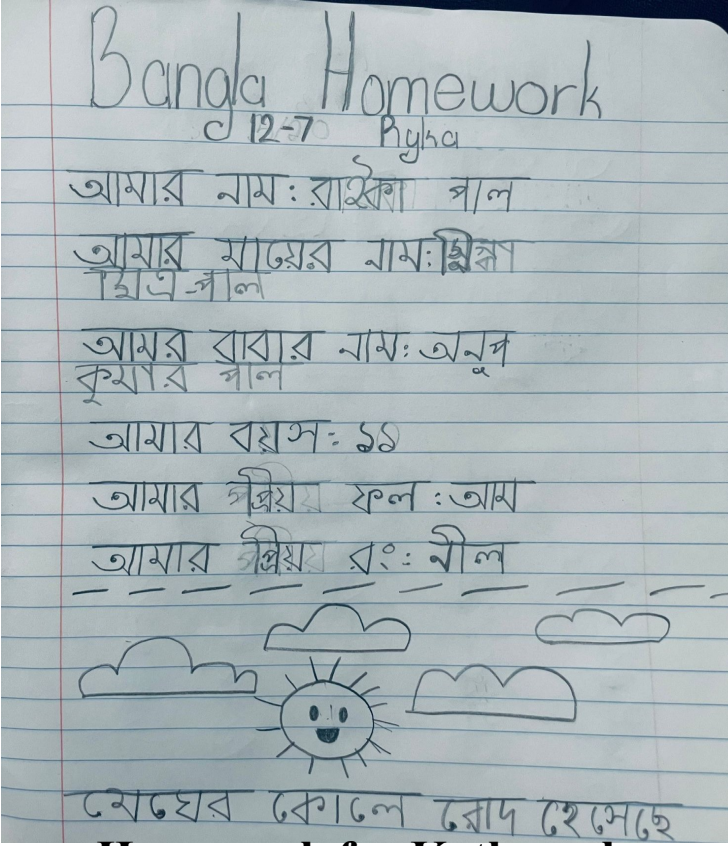 Bangla Homework
12-7 Ryka
আমার নাম: রাইকা পাল
আমার মায়ের নাম:
মিত্র-পাল
আমর বাবার নাম: অনুপ
কুমার পাল
আমার বয়স: ১১
আমার প্রিয় ফল : আম
আমার প্রিয় রং: নীল
মেঘের কোলে রোদ হেসেছে